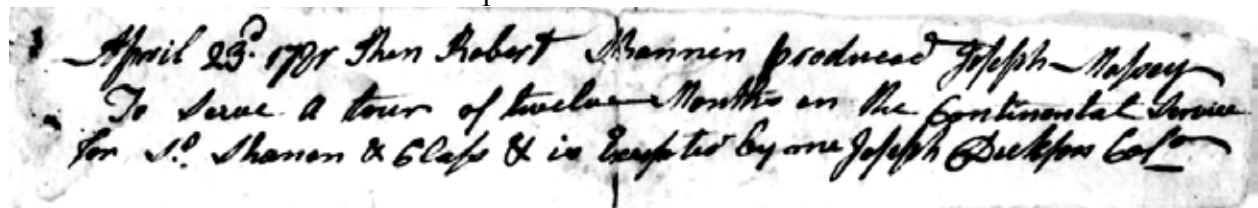 April 23d. 1781 Then Robert Shannen produced Joseph Massey
To Serve a tour of twelve Months in the Continental Service
for Sd. Shanen & Class & is Excepted by me Joseph Dickson Colo